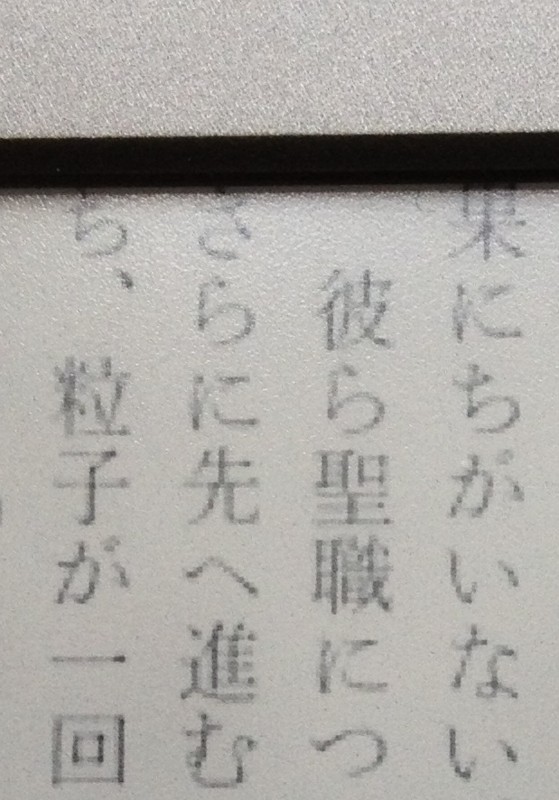 果にちがいない
彼ら聖職につ
さらに先へ進む
ち、粒子が一回